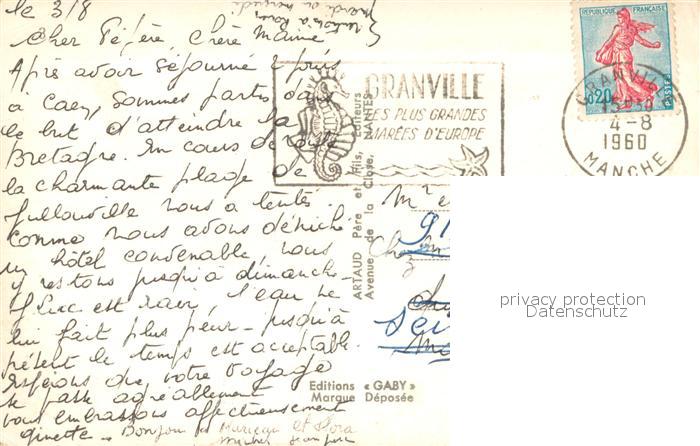 le 3/8
Cher Pépère Chère Mamie
Après avoir séjourné 2 jours
à Caen, sommes partis dans
le but d'atteindre la
Bretagne. En cours de route
la charmante plage de
Jullouville nous a tentés.
Comme nous avons déniché
un hôtel convenable, nous
y restons jusqu'à dimanche.
est ravi, l'eau ne
lui fait plus peur - jusqu'à
présent le temps est acceptable.
Espérons que votre voyage
se passe agréablement
vous embrassons affectueusement
Ginette - Bonjour à et
GRANVILLE
SES PLUS GRANDES
MARÉES D'EUROPE
REPUBLIQUE FRANÇAISE
0,20
POSTES
GRANVILLE
4-8
1960
MANCHE
ARTAUD Père et Fils, Editeurs
Avenue de la Close, NANTES
Mr e
91
Chez
Sei
privacy protection
Datenschutz
Editions « GABY »
Marque Déposée